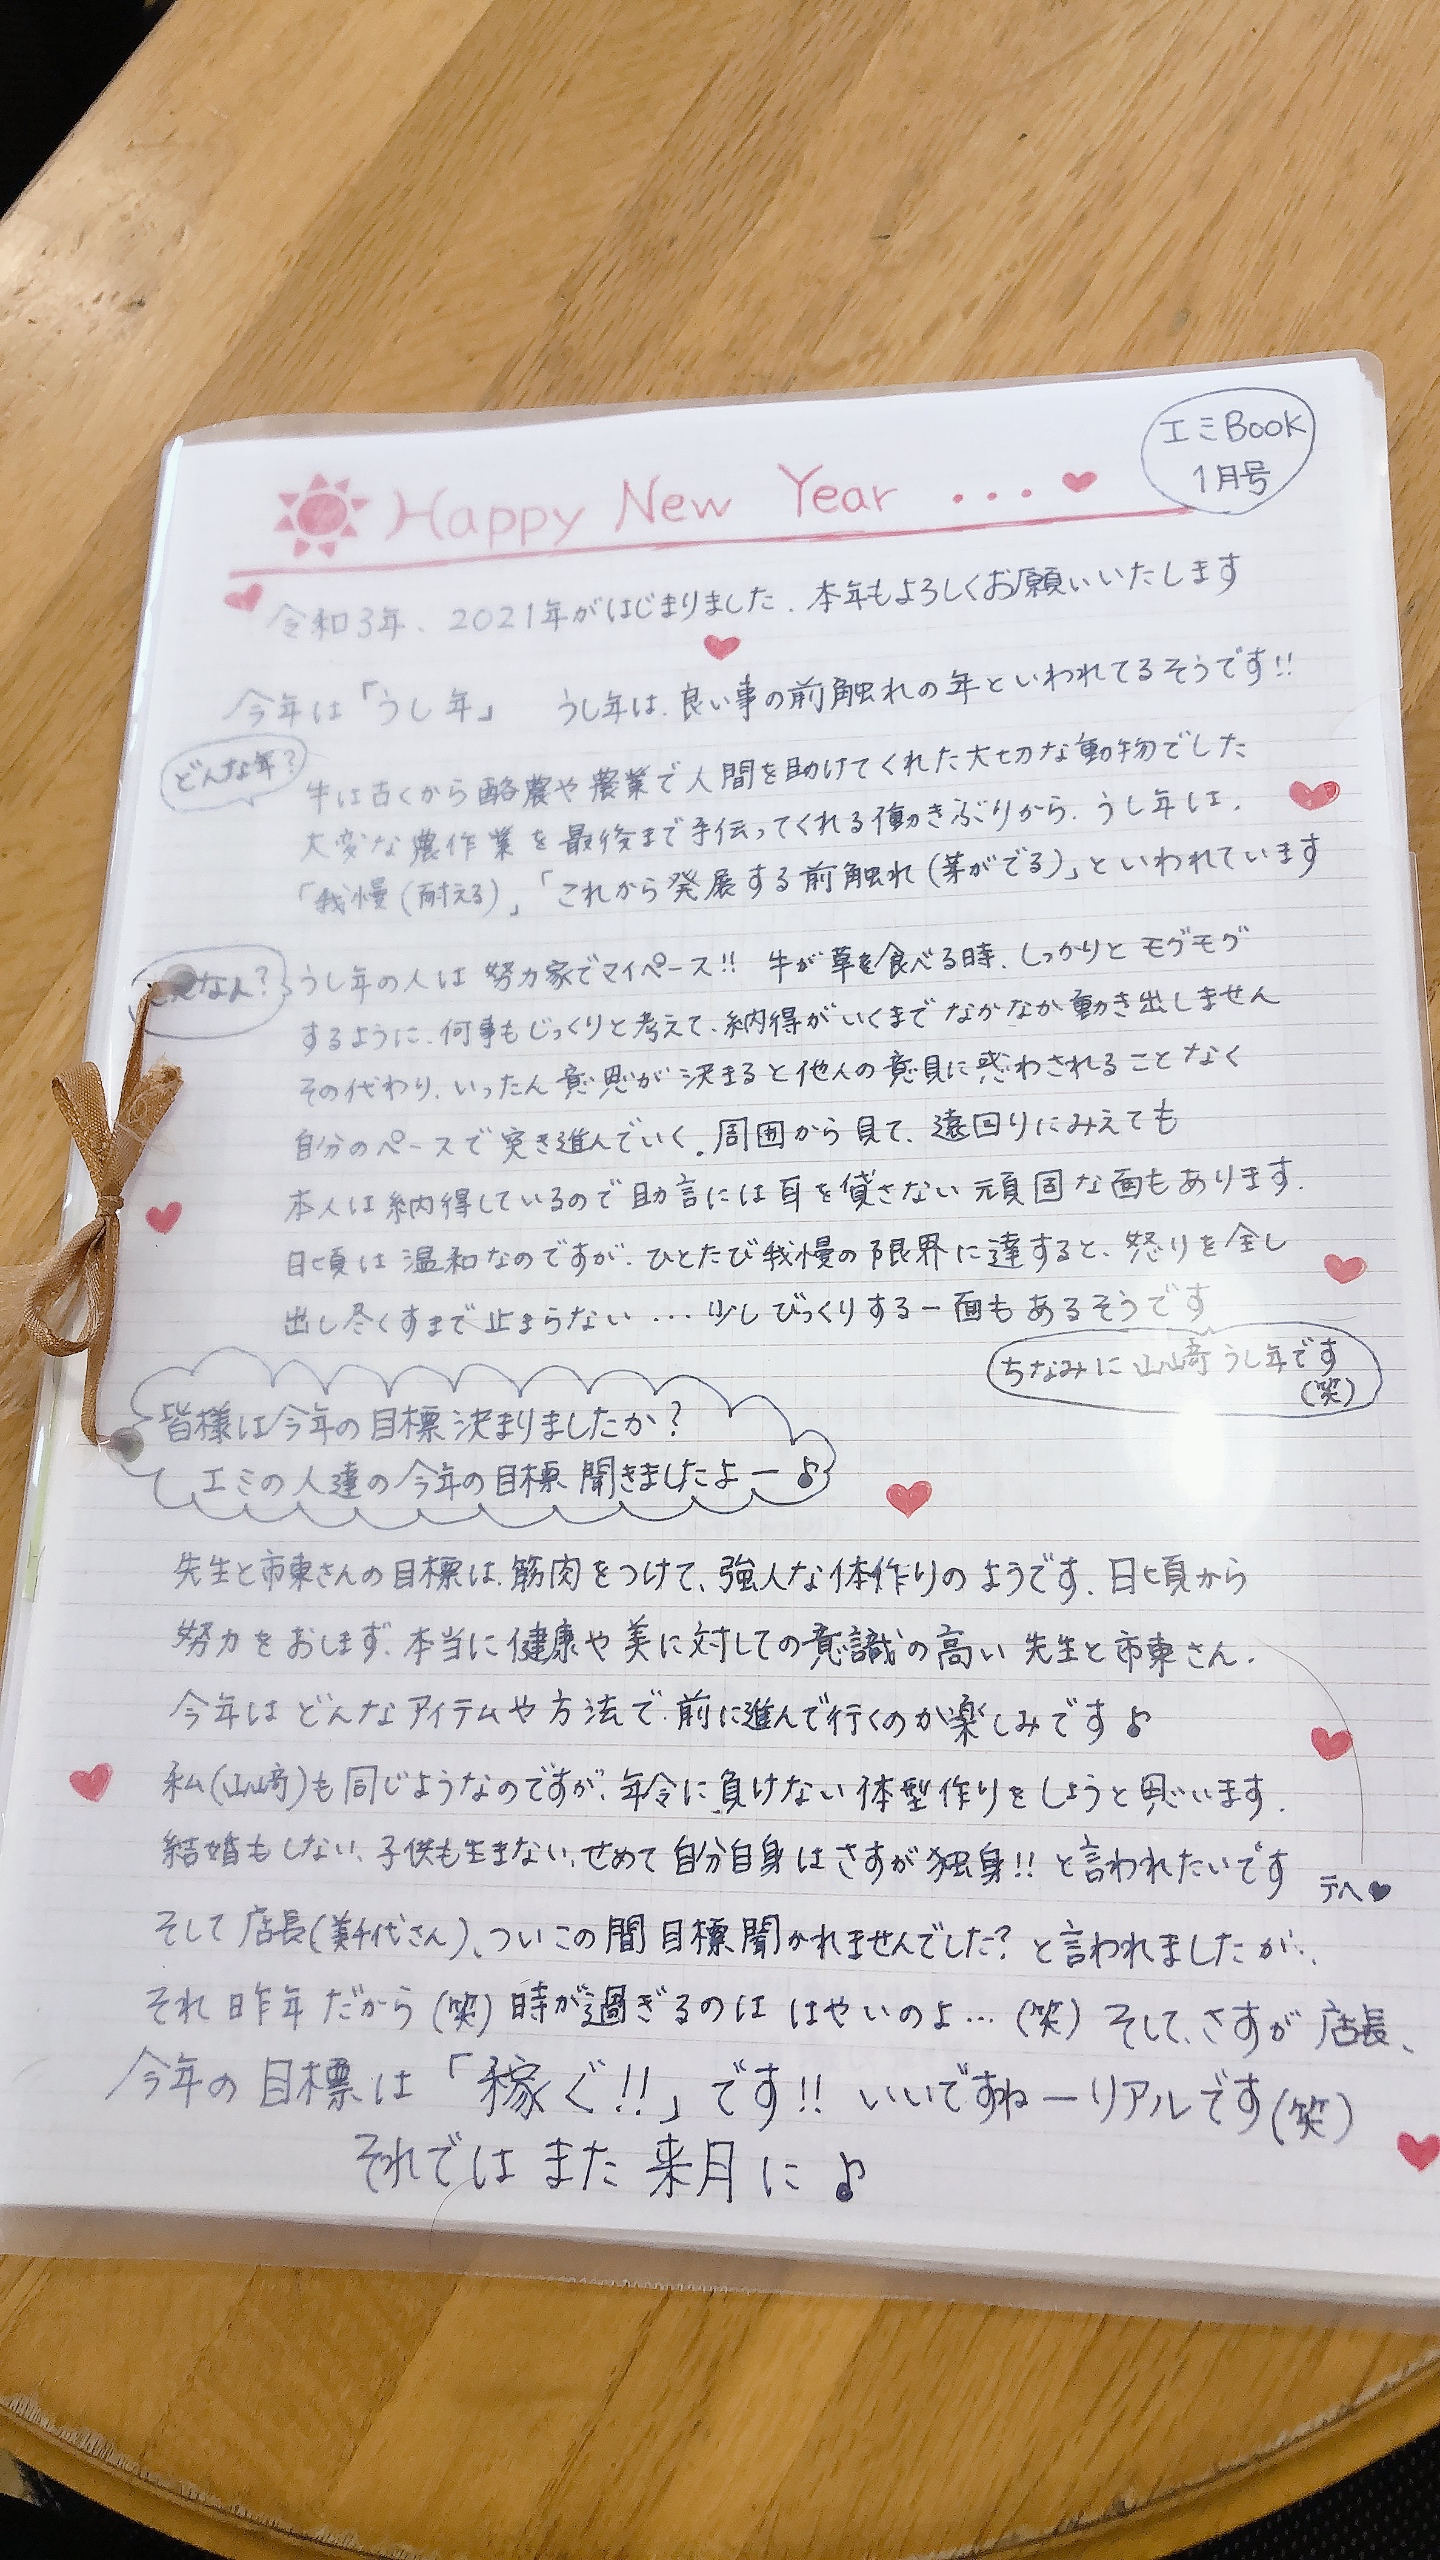 エミBook
1月号
Happy New Year ...
令和3年、2021年がはじまりました。本年もよろしくお願いいたします
今年は「うし年」 うし年は、良い事の前触れの年といわれてるそうです!!
どんな年?
牛は古くから酪農や農業で人間を助けてくれた大切な動物でした
大変な農作業を最後まで手伝ってくれる働きぶりから、うし年は、
「我慢(耐える)」「これから発展する前触れ(芽がでる)」といわれています
な人?
うし年の人は努力家でマイペース!! 牛が草を食べる時、しっかりとモグモグ
するように、何事もじっくりと考えて、納得がいくまでなかなか動き出しません
その代わり、いったん意思が決まると他人の意見に惑わされることなく
自分のペースで突き進んでいく。周囲から見て、遠回りにみえても
本人は納得しているので助言には耳を貸さない頑固な面もあります。
日頃は温和なのですが、ひとたび我慢の限界に達すると、怒りを全し
出し尽くすまで止まらない...少しびっくりする一面もあるそうです
ちなみに山﨑うし年です
(笑)
皆様は今年の目標決まりましたか?
エミの人達の今年の目標聞きましたよー♪
先生と市東さんの目標は、筋肉をつけて、強人な体作りのようです。日頃から
努力をおしまず、本当に健康や美に対しての意識の高い先生と市東さん。
今年はどんなアイテムや方法で、前に進んで行くのか楽しみです♪
私(山﨑)も同じようなのですが、年令に負けない体型作りをしようと思います。
結婚もしない、子供も生まない、せめて自分自身はさすが独身!!と言われたいです
テヘ♥
そして店長(美千代さん)、ついこの間目標聞かれませんでした?と言われましたが、
それ昨年だから(笑)時が過ぎるのははやいのよ...(笑)そして、さすが店長、
今年の目標は「稼ぐ!!」です!! いいですねーリアルです(笑)
それではまた来月に♪